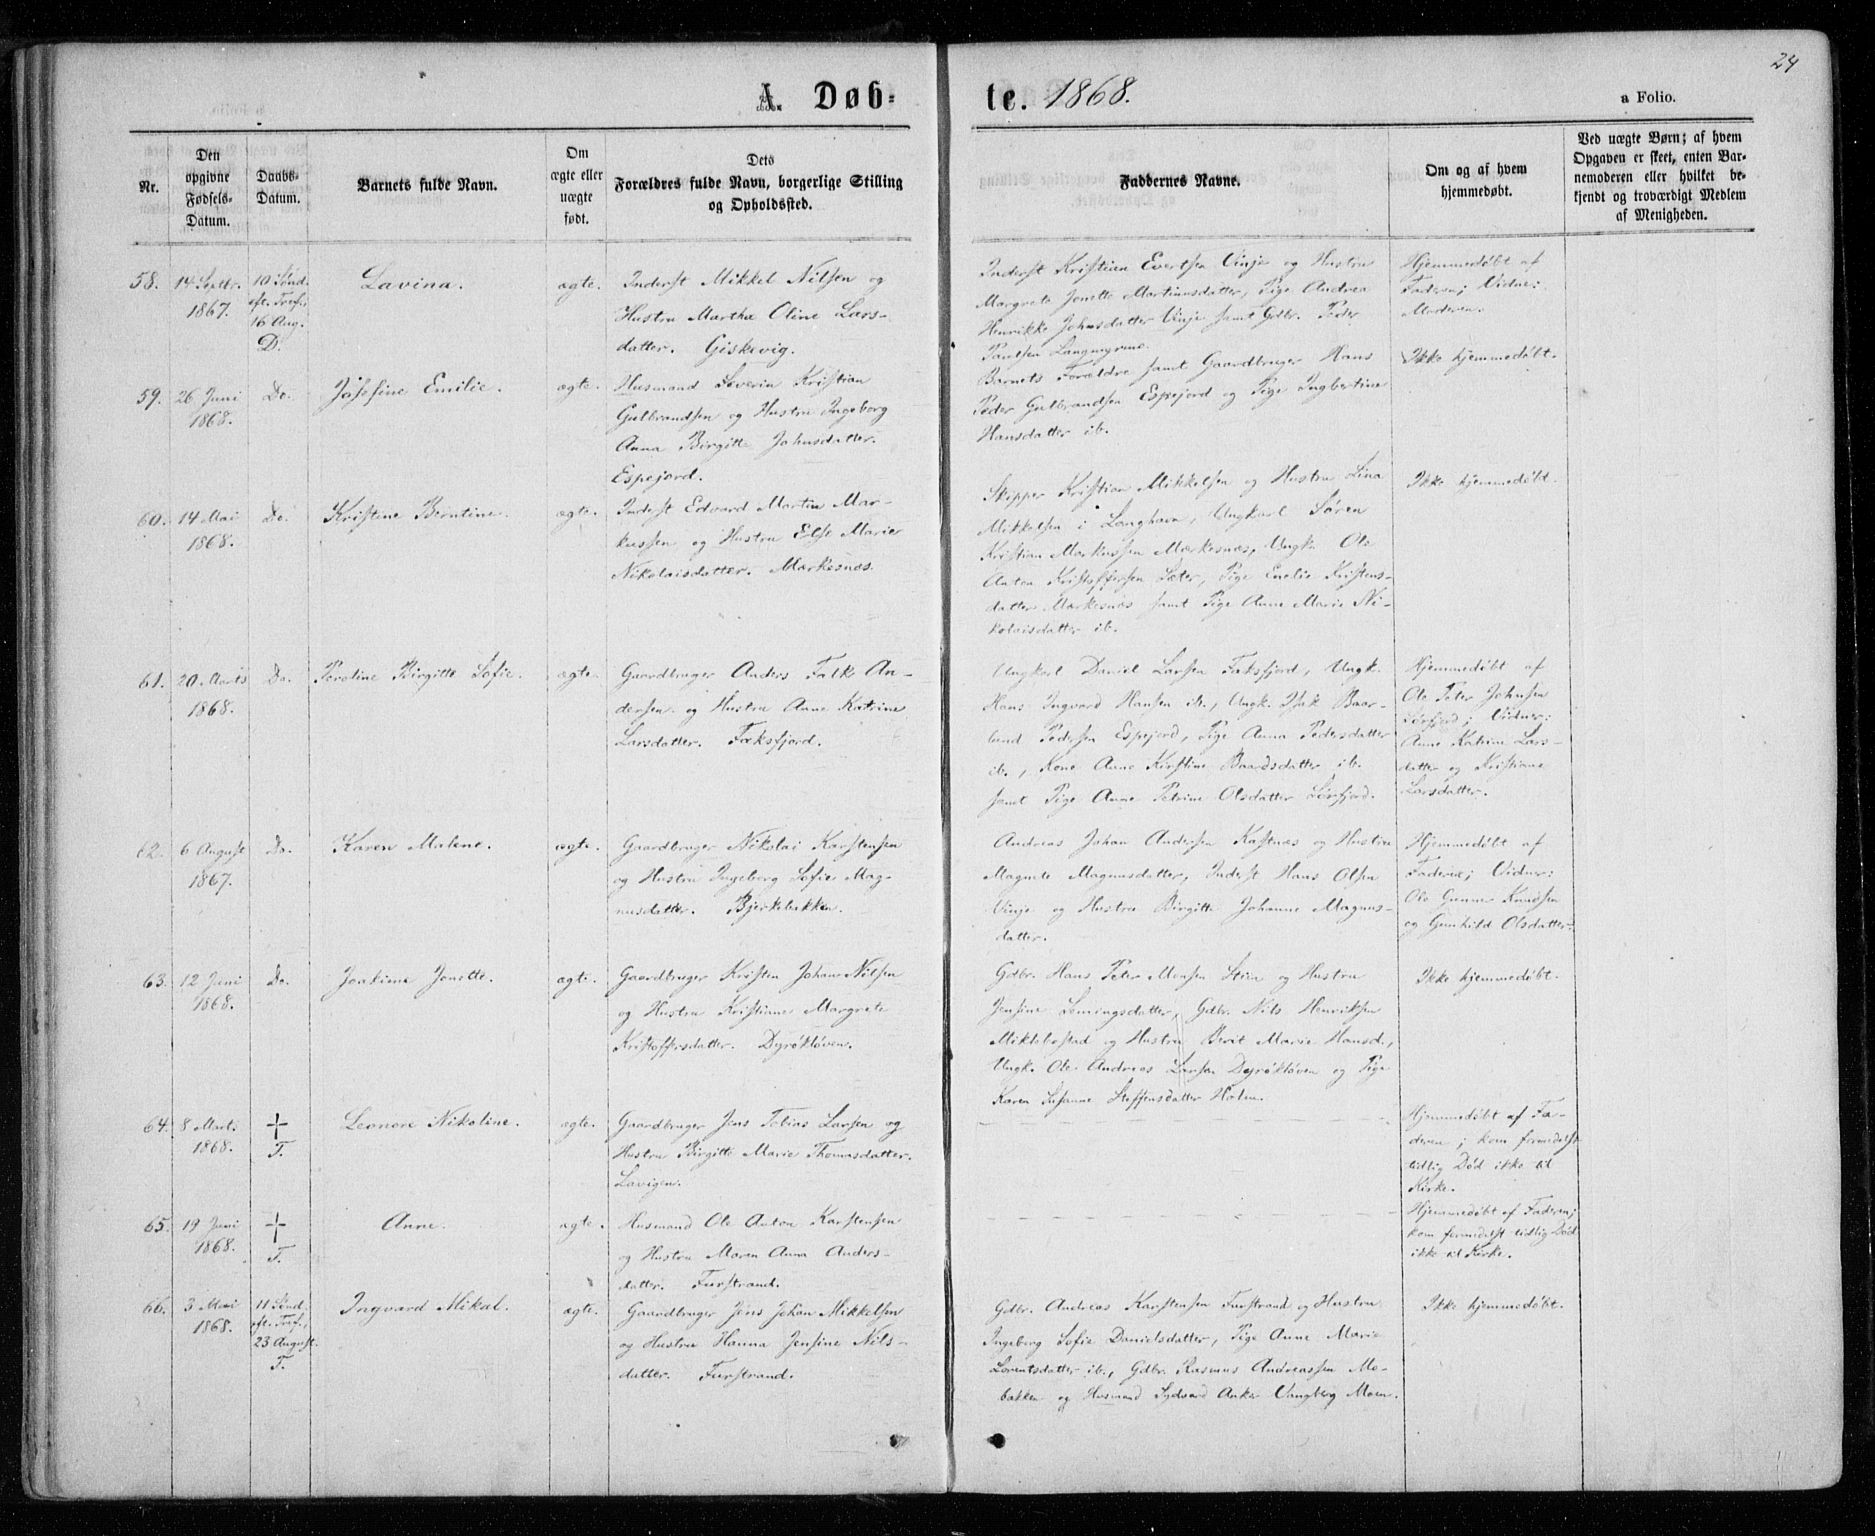 24
A. Døb-
te. 1868.
a Folio.
Nr.
Den
opgivne
Fødsels-
Datum.
Daabs-
Datum.
Barnets fulde Navn.
Om
ægte eller
uægte
født.
Dets
Forældres fulde Navn, borgerlige Stilling
og Opholdssted.
Faddernes Navne.
Om og af hvem
hjemmedøbt.
Ved uægte Børn; af hvem
Opgaven er skeet, enten Bar-
nemoderen eller hvilket be-
kjendt og troværdigt Medlem
af Menigheden.
58.
14 Septbr.
1867.
10 Sønd.
eft. Tref.,
16 Aug.
D.
Lavina.
ægte.
Inderst Mikkel Nilsen og
Hustru Martha Oline Lars-
datter. Giskevig.
Inderst Kristian Evertsen Vinje og Hustru
Margrete Jonette Martinusdatter, Pige Andrea
Henrikke Johnsdatter Vinje samt Gdbr. Peder
Paulsen Langmyrene.
Hjemmedøbt af
Faderen; Vidne:
Moderen.
59.
26 Juni
1868.
Do.
Josefine Emilie.
ægte.
Husmand Severin Kristian
Gulbrandsen og Hustru Ingeborg
Anna Birgitte Johnsdatter.
Espejord.
Barnets Forældre samt Gaardbruger Hans
Peder Gulbrandsen Espejord og Pige Ingbertine
Hansdatter ib.
Ikke hjemmedøbt.
60.
14 Mai
1868.
Do.
Kristine Berntine.
ægte.
Inderst Edvard Martin Mar-
kussen og Hustru Else Marie
Nikolaisdatter. Markesnæs.
Skipper Kristian Mikkelsen og Hustru Lina
Mikkelsen i Langhavn, Ungkarl Søren
Kristian Markussen Markesnæs, Ungk. Ole
Anton Kristoffersen Sæter, Pige Emelie Kristens-
datter Markesnæs samt Pige Anne Marie Ni-
kolaisdatter ib.
Ikke hjemmedøbt.
61.
20 Marts
1868.
Do.
Peroline Birgitte Sofie.
ægte.
Gaardbruger Anders Falk An-
dersen og Hustru Anne Katrine
Larsdatter. Faksfjord.
Ungkarl Daniel Larsen Faksfjord, Ungk.
Hans Ingvard Hansen ib., Ungk. Isak Baar-
lund Pedersen Espejord, Pige Anna Pedersdatter
ib., Kone Anne Kirstine Baardsdatter ib.
samt Pige Anne Petrine Olsdatter Sørfjord.
Hjemmedøbt af
Ole Peter Johnsen
Sørfjord; Vidner:
Anne Katrine Lars-
datter og Kristiane
Larsdatter.
62.
6 August
1867.
Do.
Karen Malene.
ægte.
Gaardbruger Nikolai Karstensen
og Hustru Ingeborg Sofie Mag-
nusdatter. Bjerkebakken.
Andreas Johan Andersen Kastnæs og Hustru
Magnete Magnusdatter, Inderst Hans Olsen
Vinje og Hustru Birgitte Johanne Magnus-
datter.
Hjemmedøbt af
Faderen; Vidner:
Ole Gunner Knudsen
og Gunhild Olsdatter.
63.
12 Juni
1868.
Do.
Joakime Jonette.
ægte.
Gaardbruger Kristen Johan Nilsen
og Hustru Kristiane Margrete
Kristoffersdatter. Dyrøkløven.
Gdbr. Hans Peter Monsen Stien og Hustru
Jensine Lemingsdatter, Gdbr. Nils Henriksen
Miklebostad og Hustru Berit Marie Hansd.,
Ungk. Ole Andreas Larsen Dyrøkløven og Pige
Karen Susanne Steffensdatter Holm.
Ikke hjemmedøbt.
64.
8 Marts
1868.
†
T.
Leonore Nikoline.
ægte.
Gaardbruger Jens Tobias Larsen og
Hustru Birgitte Marie Thomasdatter.
Lavigen.
Hjemmedøbt af Fa-
deren; kom formedelst
tidlig Død ikke til
Kirke.
65.
19 Juni
1868.
†
T.
Anne.
ægte.
Husmand Ole Anton Karstensen
og Hustru Maren Anna Anders-
datter. Furstrand.
Hjemmedøbt af Faderen;
kom formedelst tidlig Død
ikke til Kirke.
66.
3 Mai
1868.
11 Sønd.
eft. Tref.,
23 August.
T.
Ingvard Mikal.
ægte.
Gaardbruger Jens Johan Mikkelsen
og Hustru Hanna Jensine Nils-
datter. Furstrand.
Gdbr. Andreas Karstensen Furstrand og Hustru
Ingeborg Sofie Danielsdatter, Pige Anne Marie
Lorentsdatter ib., Gdbr. Rasmus Andreassen Mo-
bakken og Husmand Sydvard Anker Vangberg Moen.
Ikke hjemmedøbt.